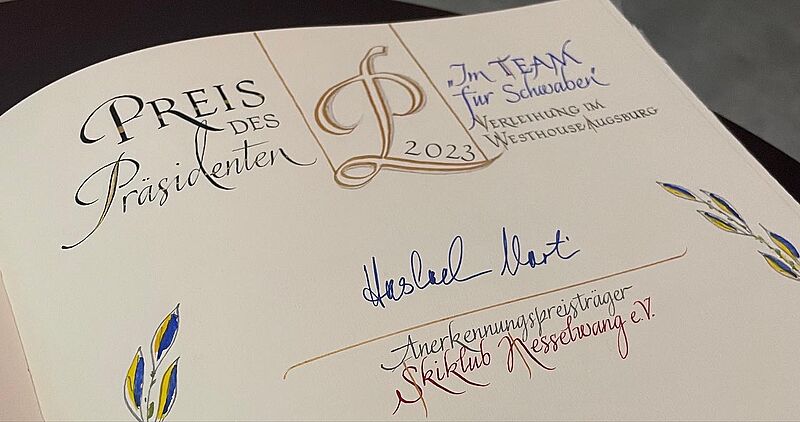 PREIS
DES
Präsidenten
2023
„Im TEAM
für Schwaben"
VERLEIHUNG IM
WESTHOUSE/AUGSBURG
Anerkennungspreisträger
Skiklub Nesselwang e.V.